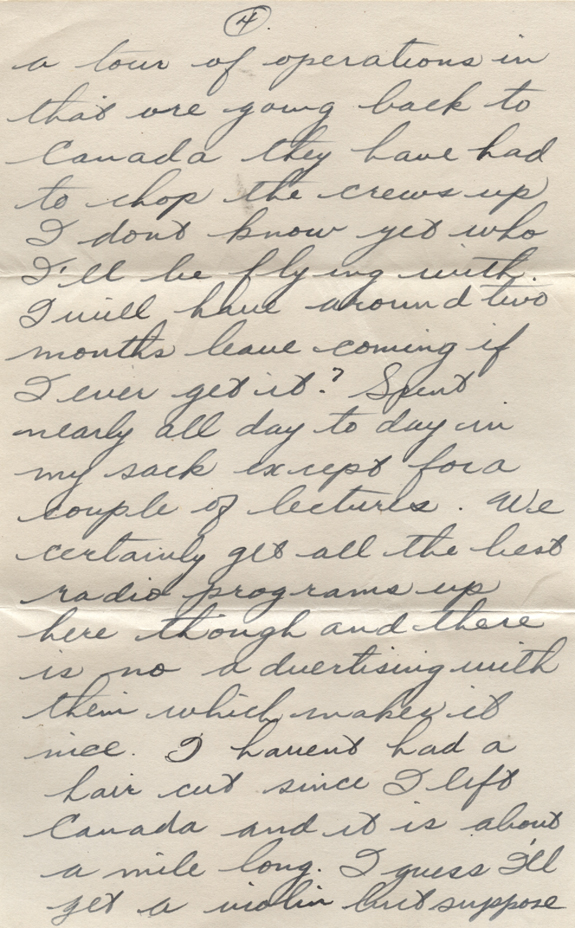 4.
a tour of operations in
that are going back to
Canada they have had
to chop the crews up
I dont know yet who
I'll be flying with.
I will have around two
months leave coming if
I ever get it? Spent
nearly all day to day in
my sack except for a
couple of lectures. We
certainly get all the best
radio programs up
here though and there
is no advertising with
them which makes it
nice. I havent had a
hair cut since I left
Canada and it is about
a mile long. I guess I'll
get a violin but suppose